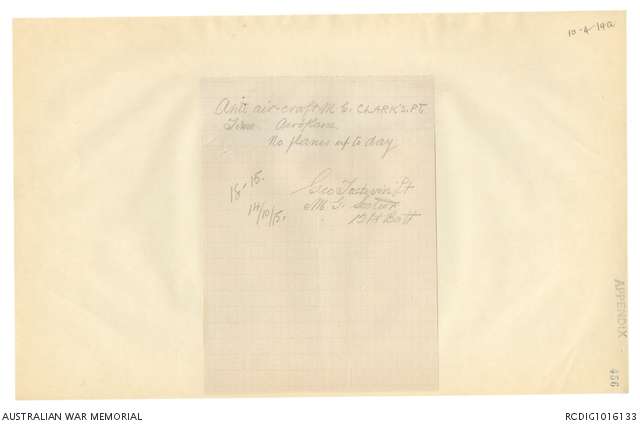 10-4-19a
Anti air-craft M G. CLARK'S. PT.
Time. Aeroplane.
No planes up to day.
18.15.
14/10/15.
Geo Lt
M. G. Section
12th Batt
APPENDIX
456
AUSTRALIAN WAR MEMORIAL
RCDIG1016133